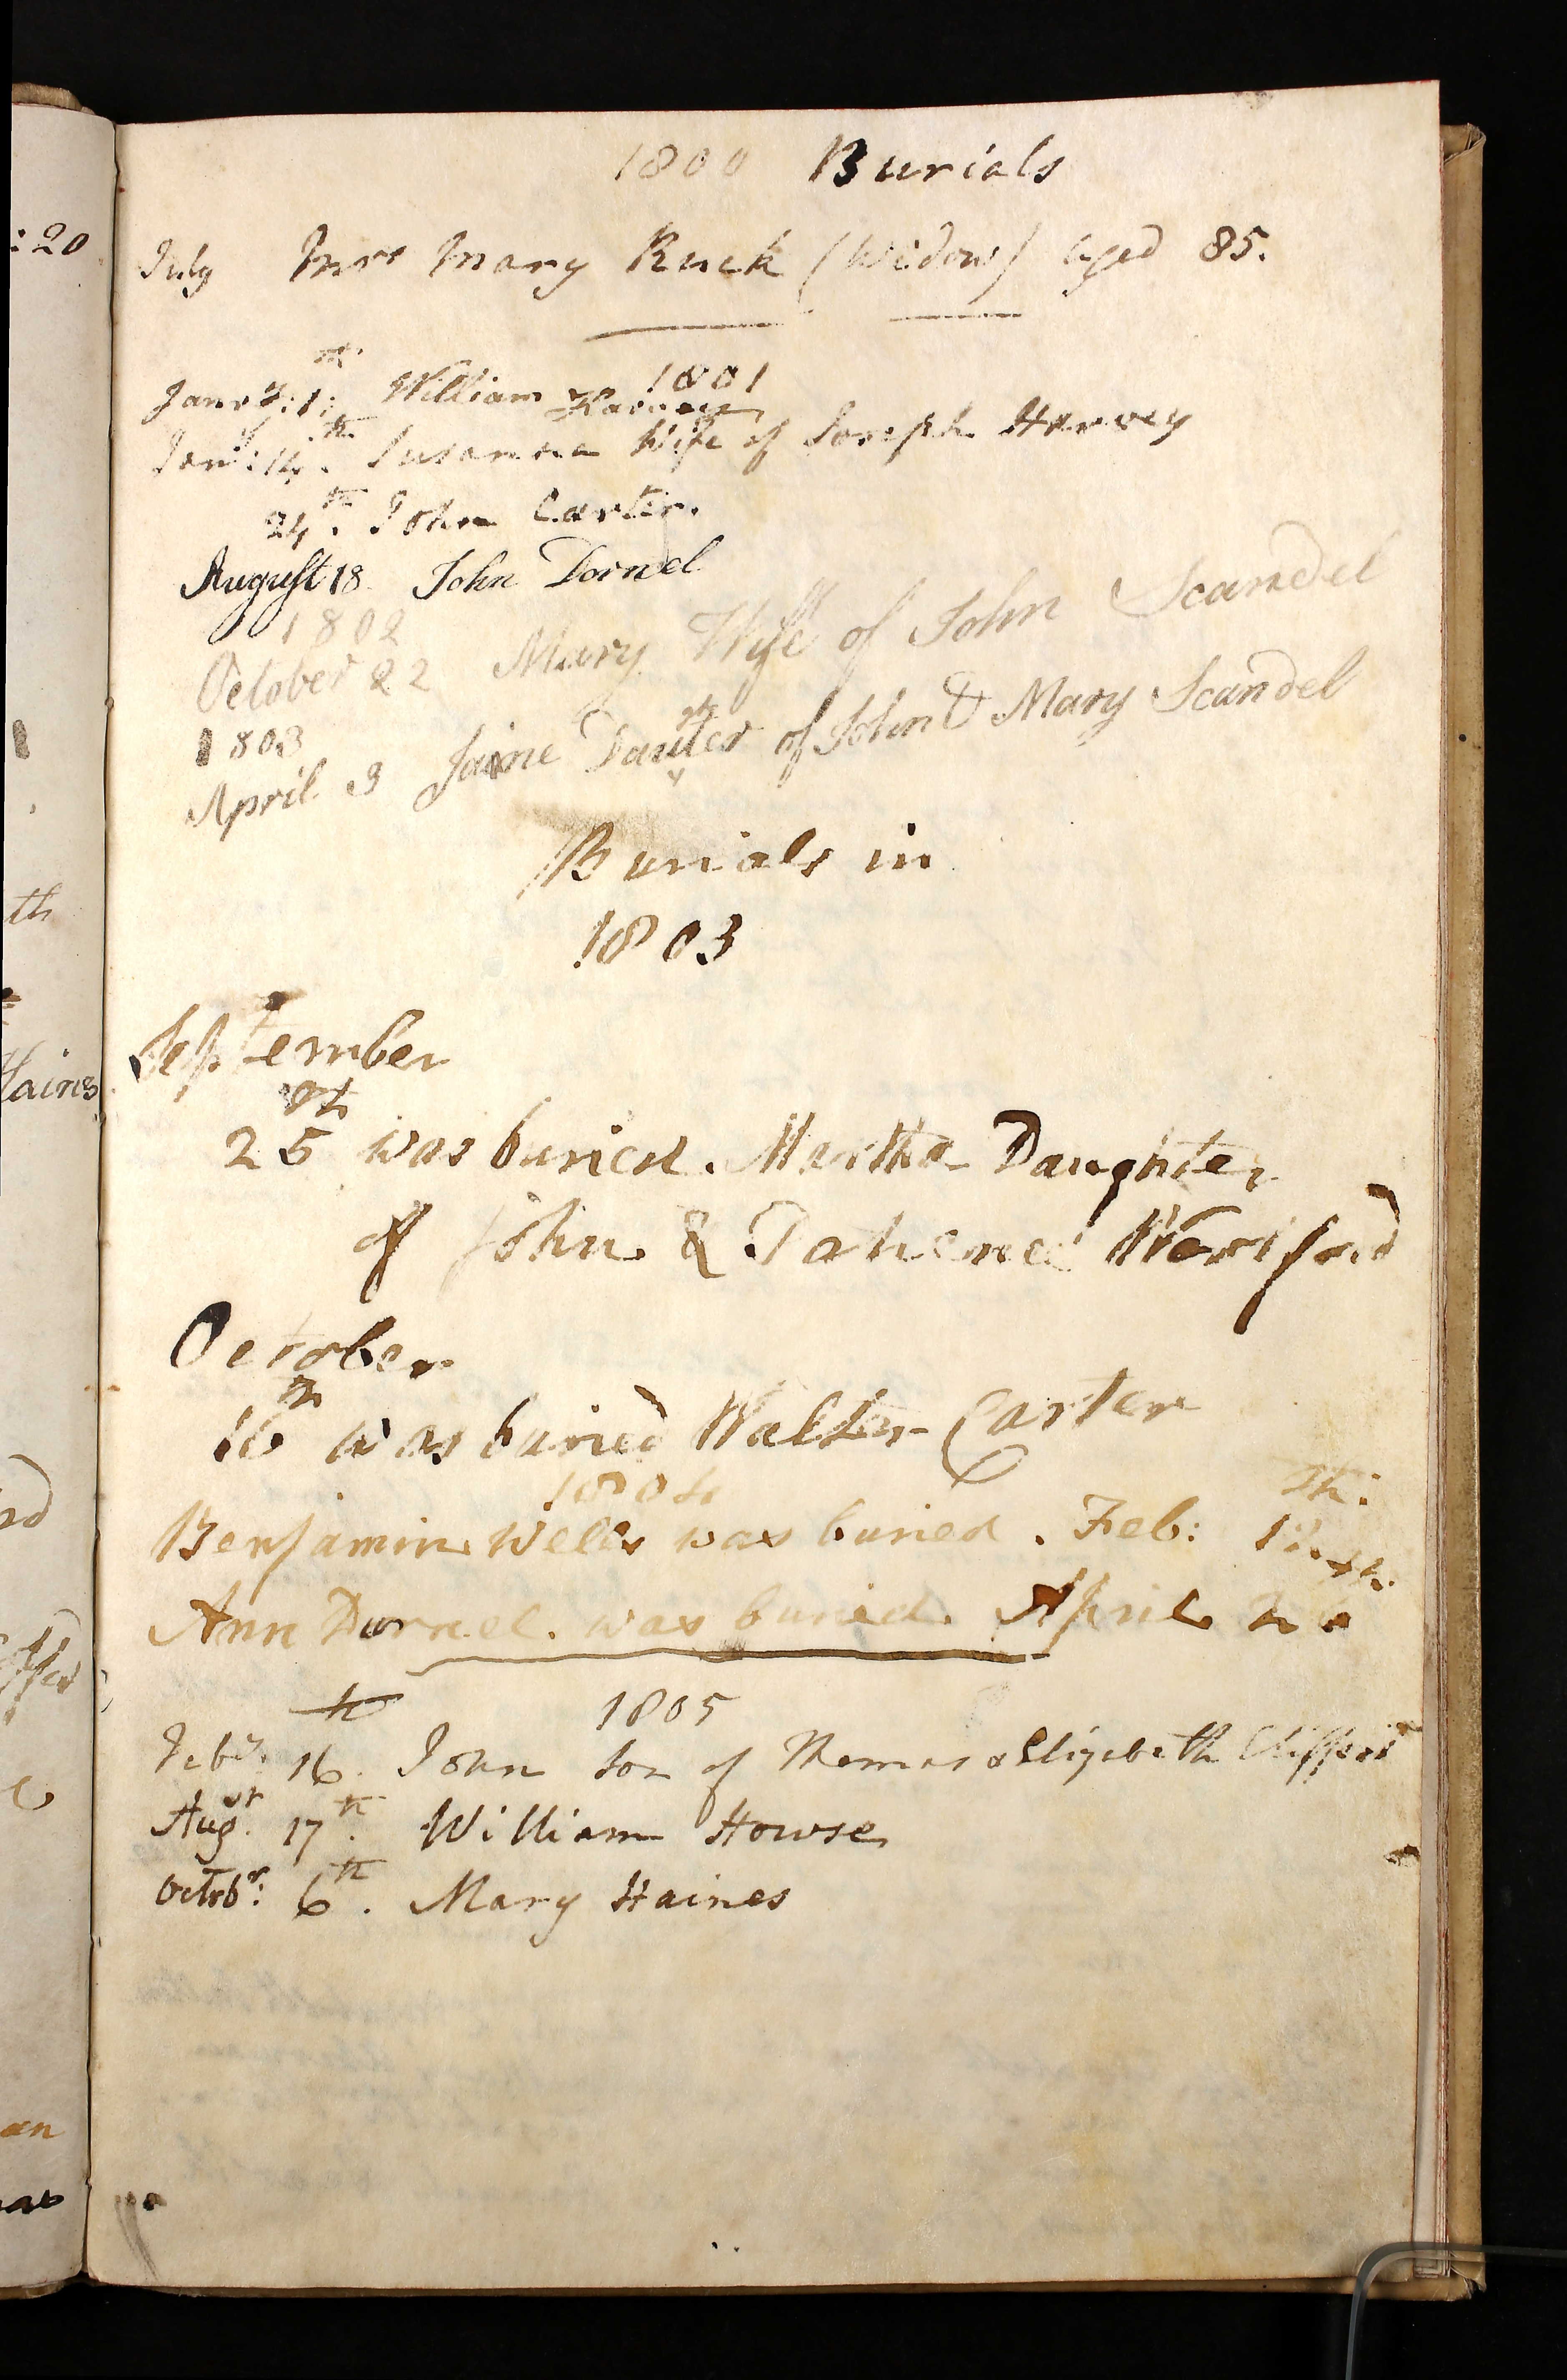 1800 Burials
July Mrs Mary Ruck (Widow) aged 85.
1801
Janry: 1th William Harvey
Jany: 14th. Susanna Wife of Joseph Harvey
24th. John Carter.
August 18 John Dornel
1802
October 22 Mary Wife of John Scandel
1803
April 3 Jaine Daughter of John & Mary Scandel
Burials in
1803
September
25th was buried. Martha Daughter
of John & Patience
October
16th was buried Walter Carter
1804
Benjamin Wells was buried. Feb: 12th:
Ann Durnel. was buried. April
1805
Feby. 16th. John Son of Thomas & Elizebeth Clifford
Augst. 17th. William Howse
Octobr: 6th. Mary Haines
: 20
th
Haines
rd
an